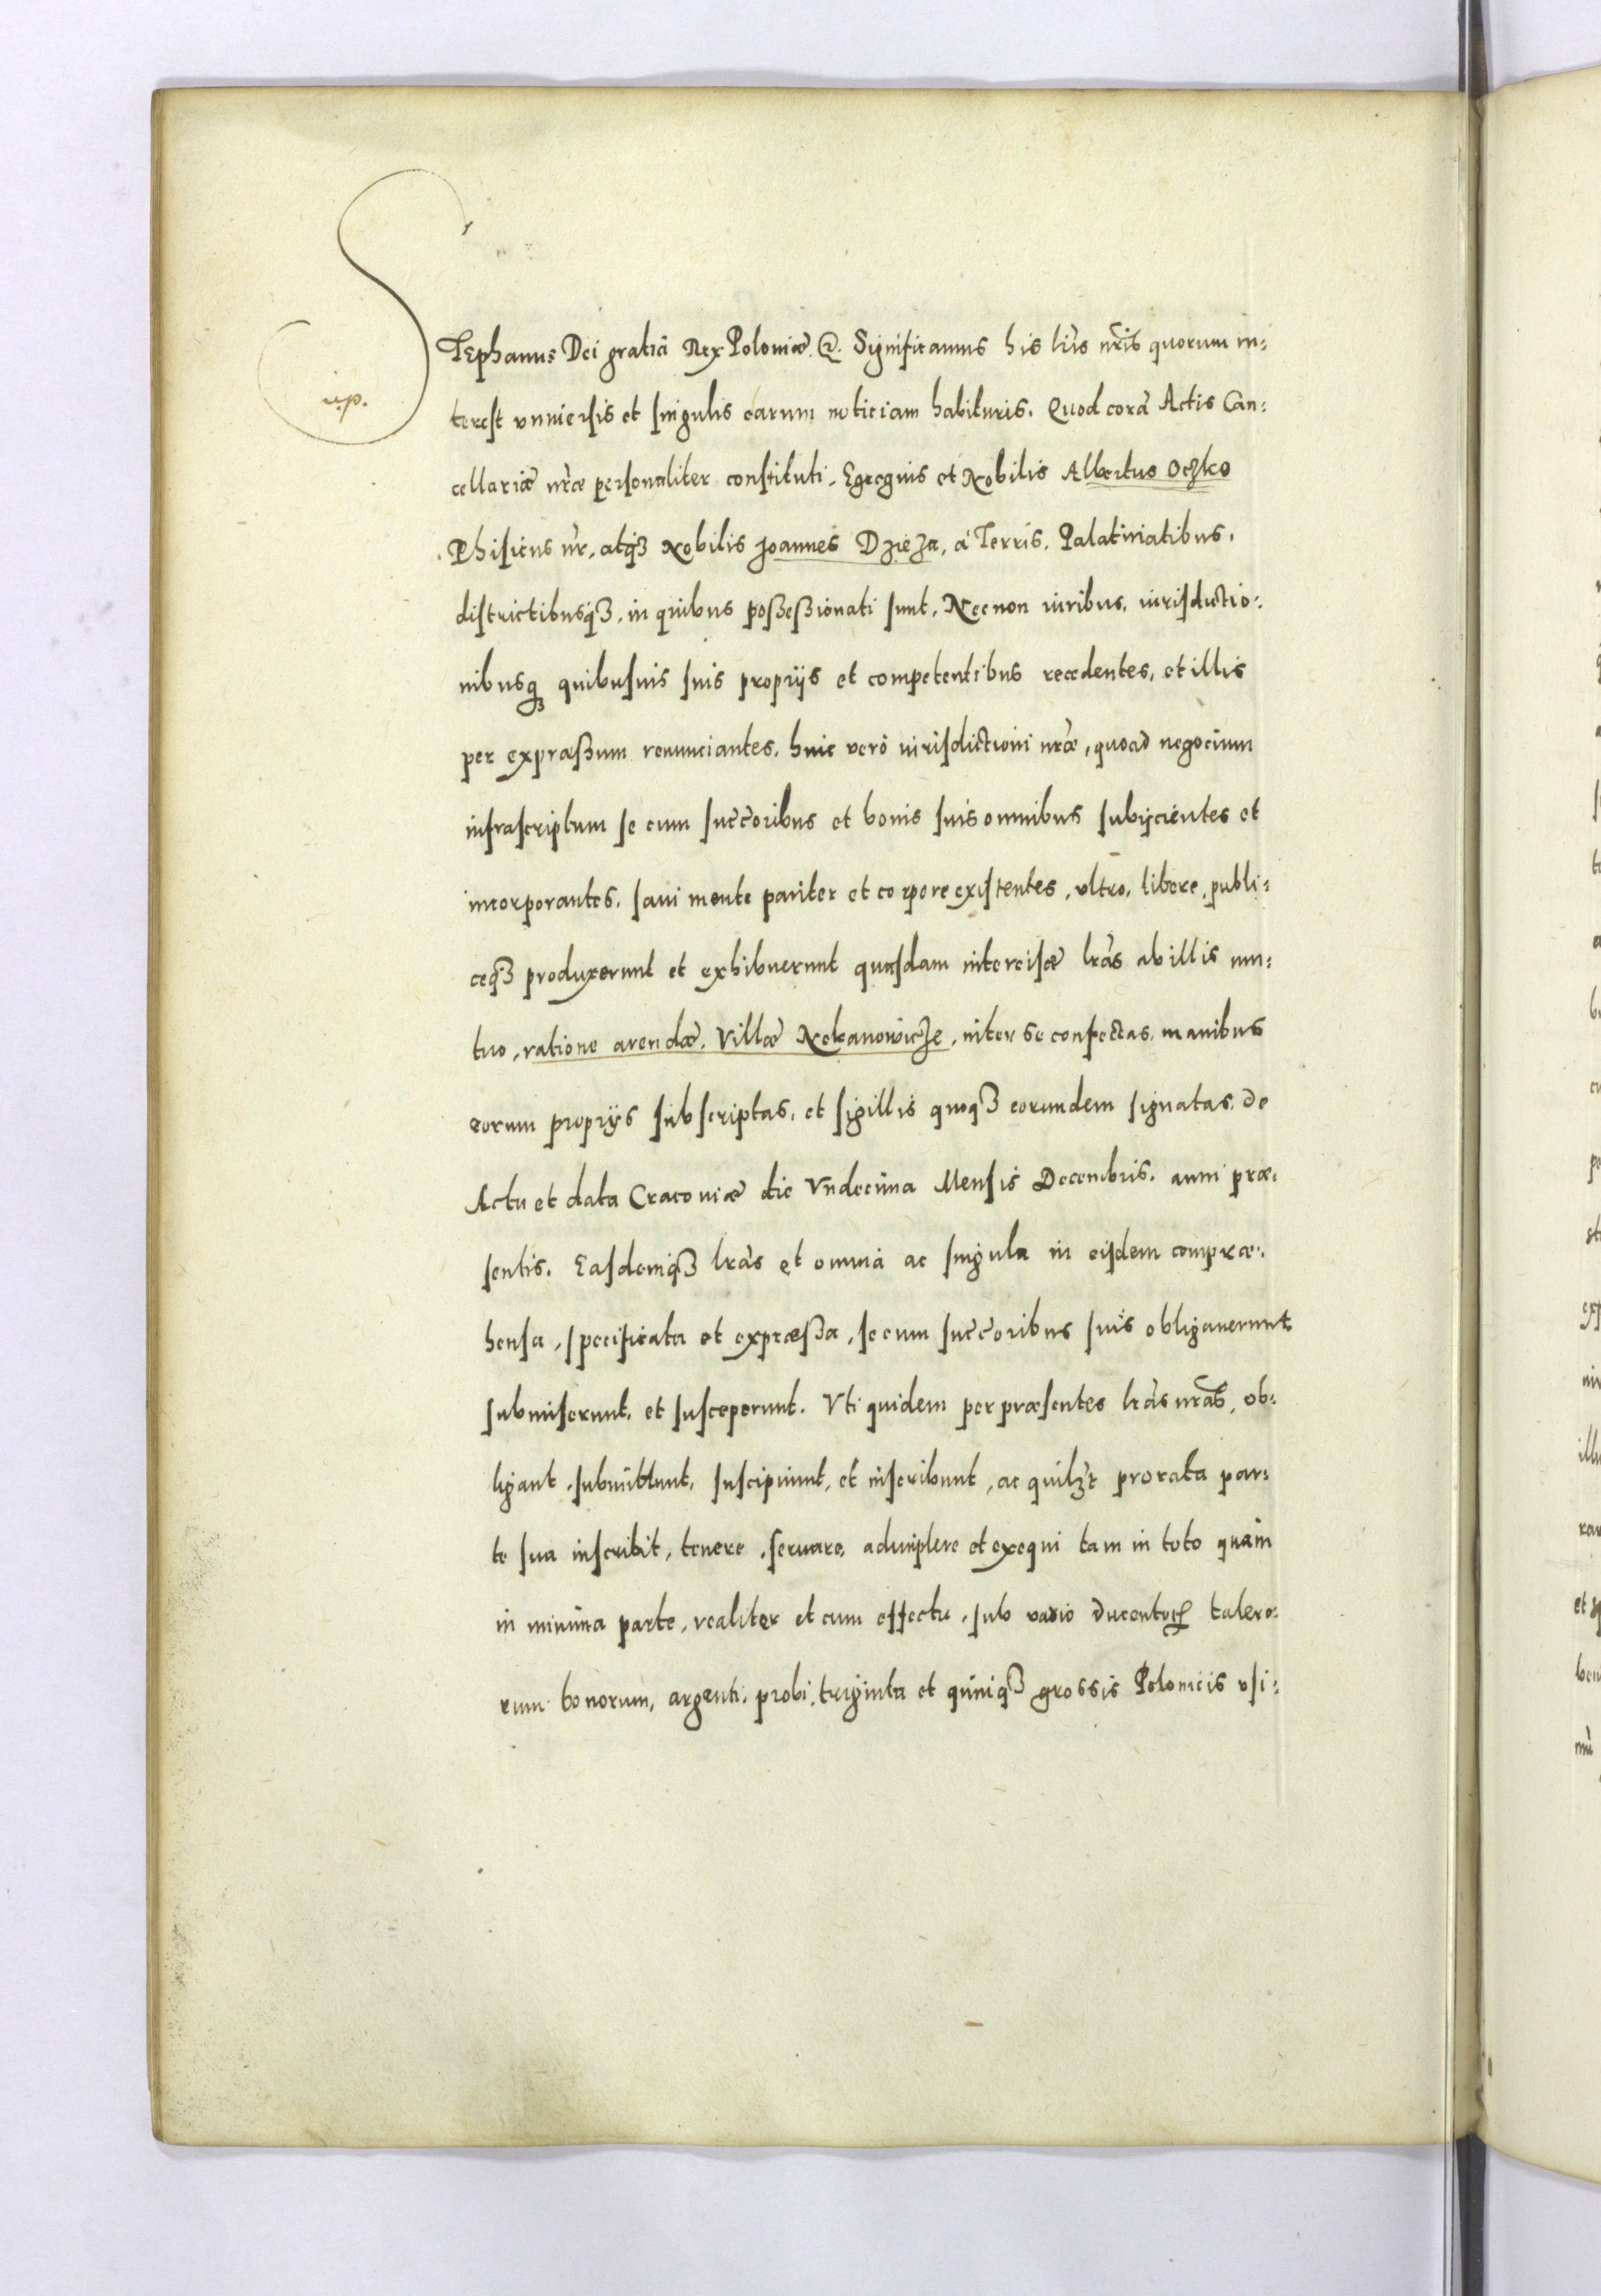 STEphanus Dei gratiā Rex Poloniæ &. Significamus his lrīs nrīs quorum in-
terest vniuersis et singulis earum noticiam habituris. Quod corā Actis Can-
n.p.
cellariæ nrāe personaliter constituti, Egregius et Nobilis Albertus Oczko
Phisicus nr̄, atq3 Nobilis Joannes Dzieża, à Terris, Palatinatibus,
districtibusq3, in quibus possessionati sunt, Necnon iuribus, iurisdictio-
nibusq3 quibusuis suis proprijs et competentibus recedentes, et illis
per expræssum renunciantes, huic verò iurisdictioni nrāe, quoad negocium
infrascriptum se cum succ̄oribus et bonis suis omnibus subijcientes et
incorporantes, sani mente pariter et corpore existentes, vltro, libere, publi-
ceq3 produxerunt et exhibuerunt quasdam intercisæ lrās ab illis mu-
tuo, ratione arendæ, Villæ Nekanowicze, inter se confectas, manibus
eorum proprijs subscriptas, et sigillis quoq3 eorundem signatas, de
Actu et data Cracouiæ die Vndecima Mensis Decembris, anni præ-
sentis. Easdemq3 lrās et omnia ac singula in eisdem compræ-
hensa, specificata et expræssa, se cum succ̄oribus suis obligauerunt
submiserunt, et susceperunt. Vti quidem per præsentes lrās nrās, ob-
ligant, submittunt, suscipiunt, et inscribunt, ac quilz̄t prorata par-
te sua inscribit, tenere, seruare, adimplere et exequi tam in toto quàm
in minima parte, realiter et cum effectu, sub vadio ducentor̄ talero-
rum bonorum, argenti, probi, triginta et quinq3 grossis Polonicis vsi-